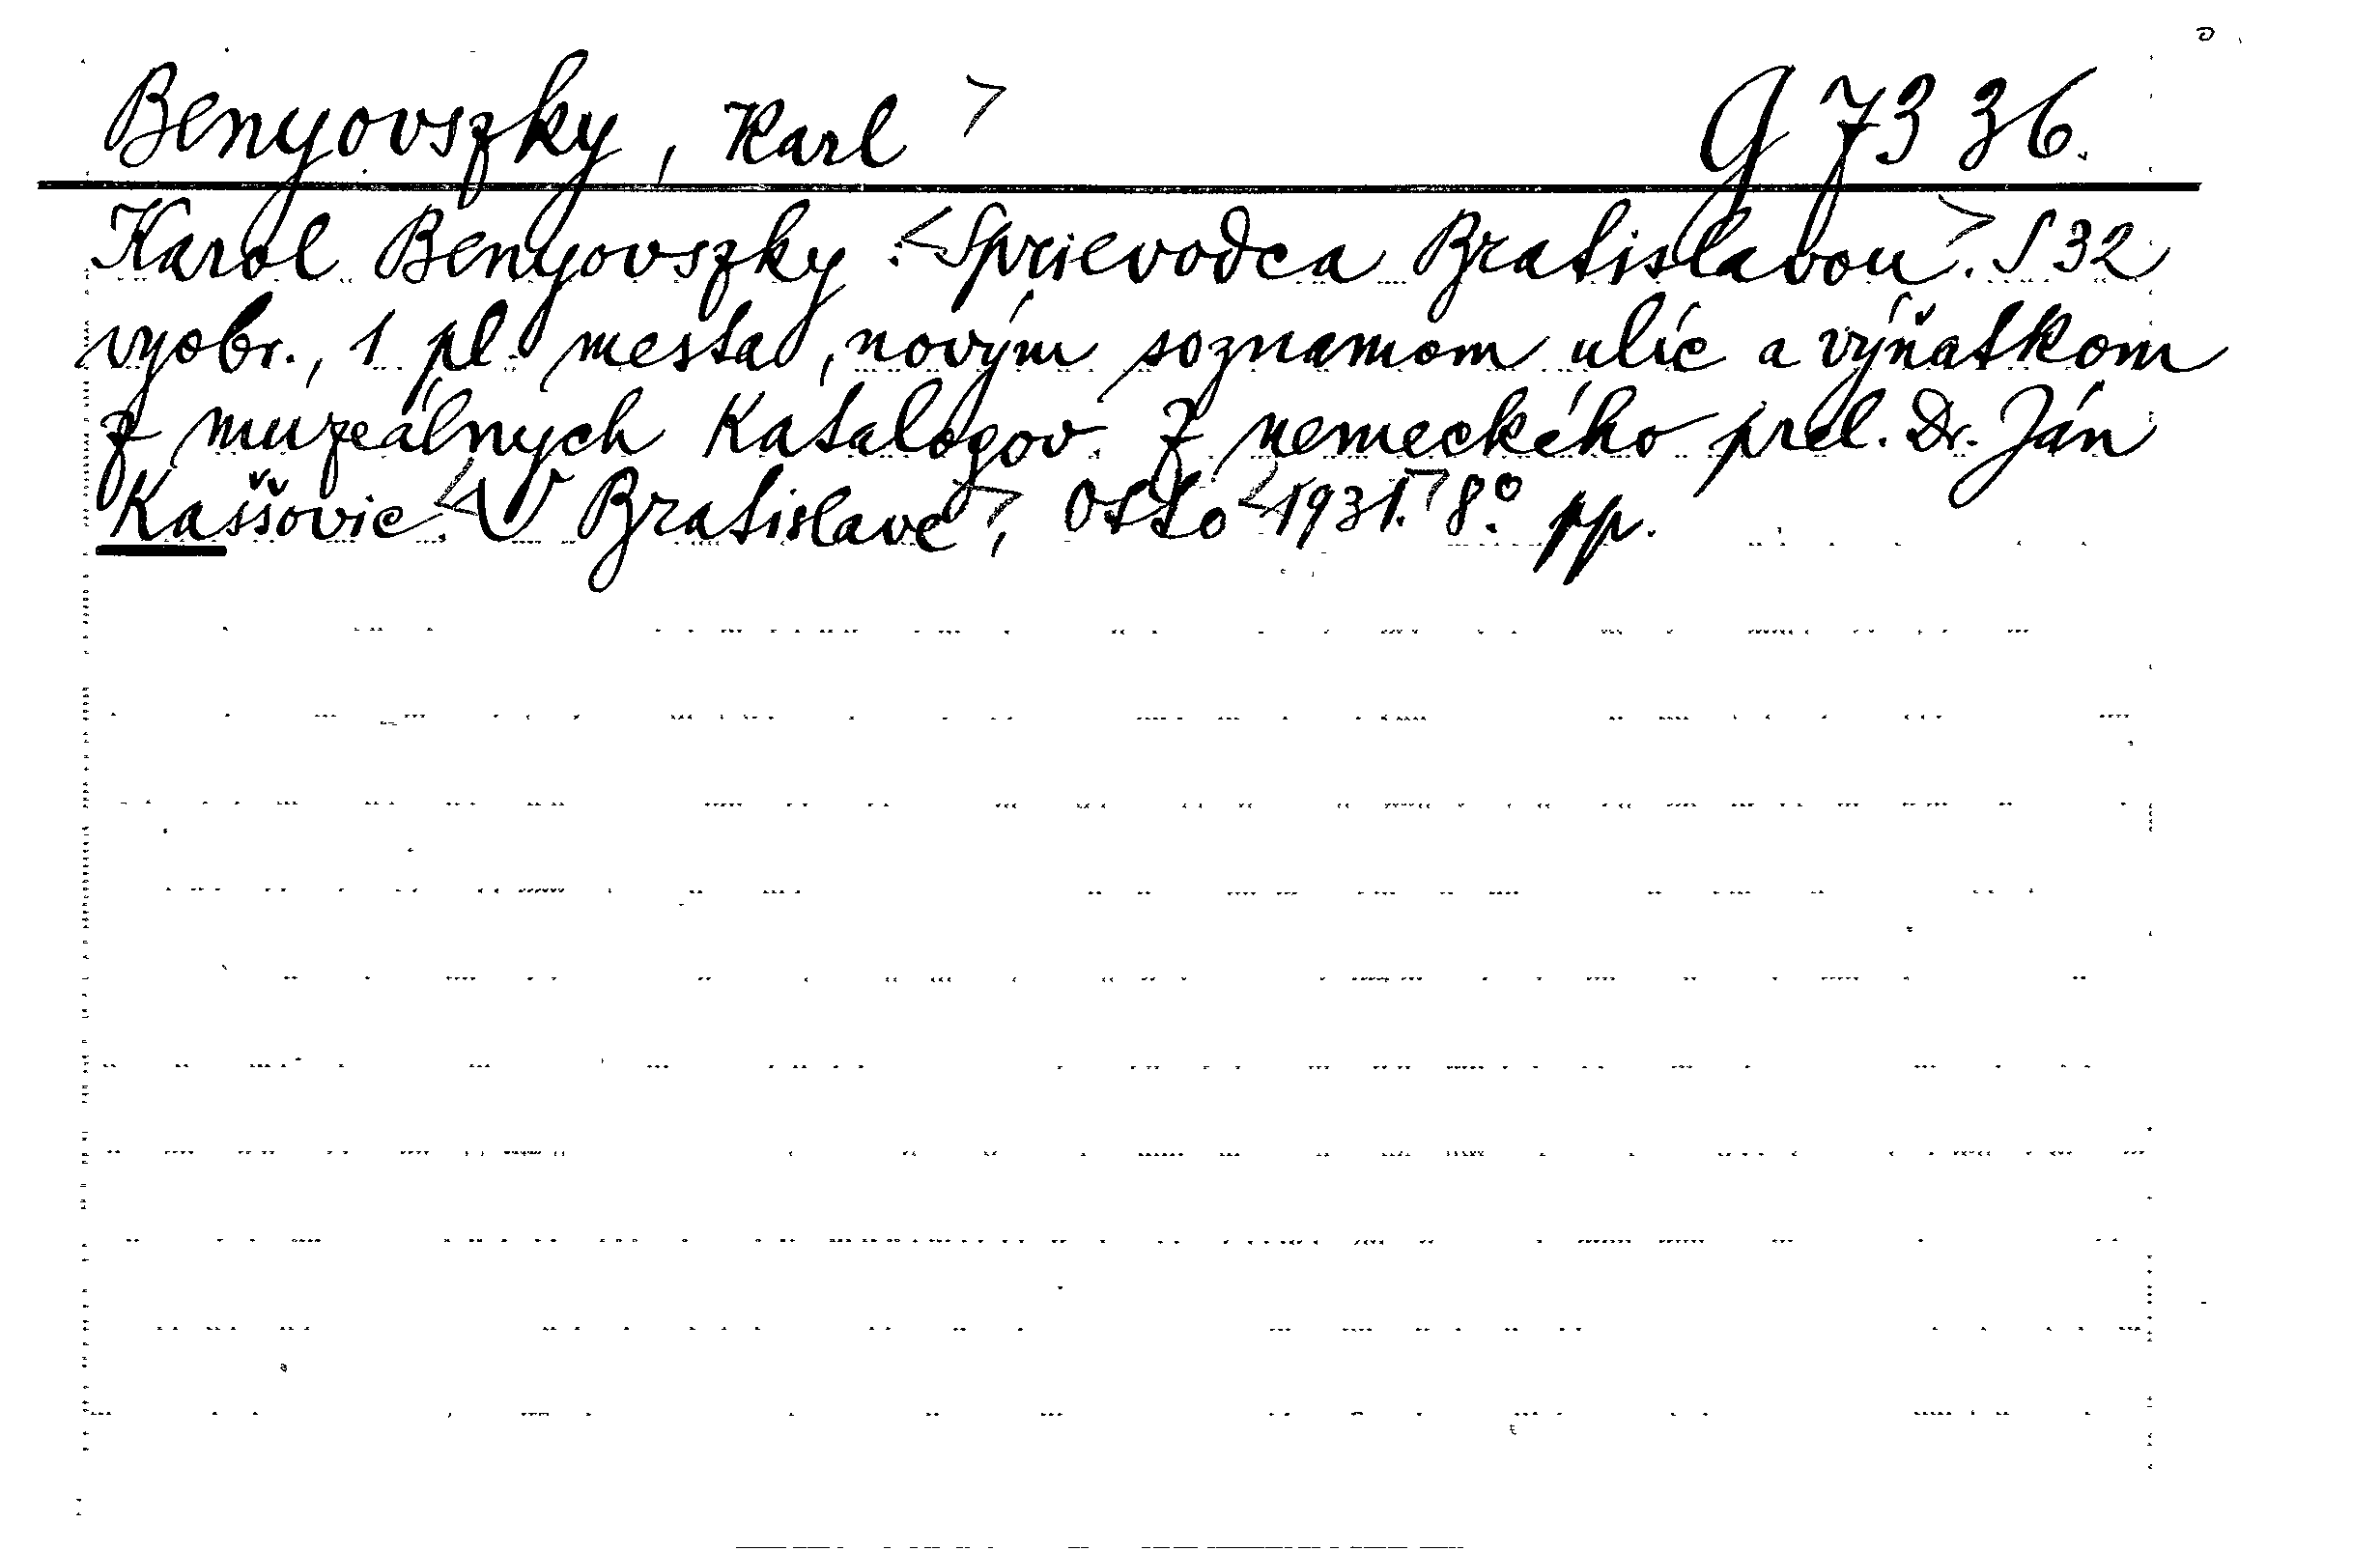 Benyovszky, Karl > G 7336.
Karol Benyovszky: <Sprievodca Bratislavou>. S 32
vyobr., 1 pl. mesta, novým soznamom ulíc a výňatkom
z muzeálnych katalogov. Z nemeckého prel. Dr. Ján
Kaššovic. <V Bratislave>, Otto <1931.> 8°. pp.